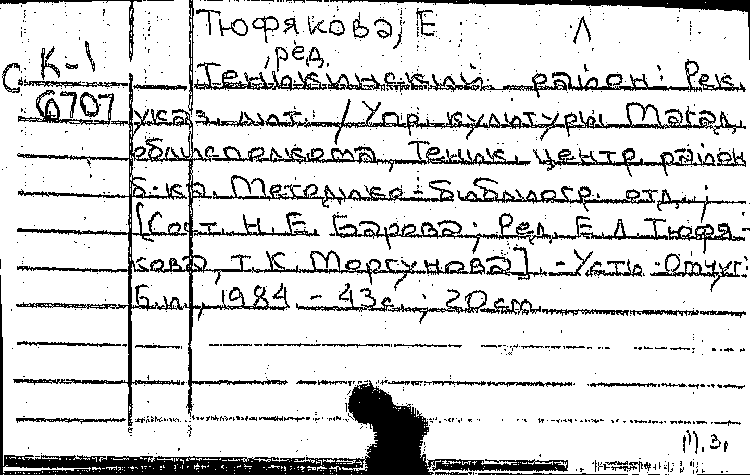 Тюфякова, Е Л
ред.
К-1 Тенькинский район: Рек.
6707 указ. лит. / Упр. культуры Магад.
облисполкома, Теньк. центр. район
б-ка. Методико-библиогр. отд.;
[Сост. Н. Е. Барова; Ред. Е Л Тюфя-
кова, Т. К. Моргунова]. - Усть-Омчуг:
Б.и., 1984. - 43с.; 20 cm.